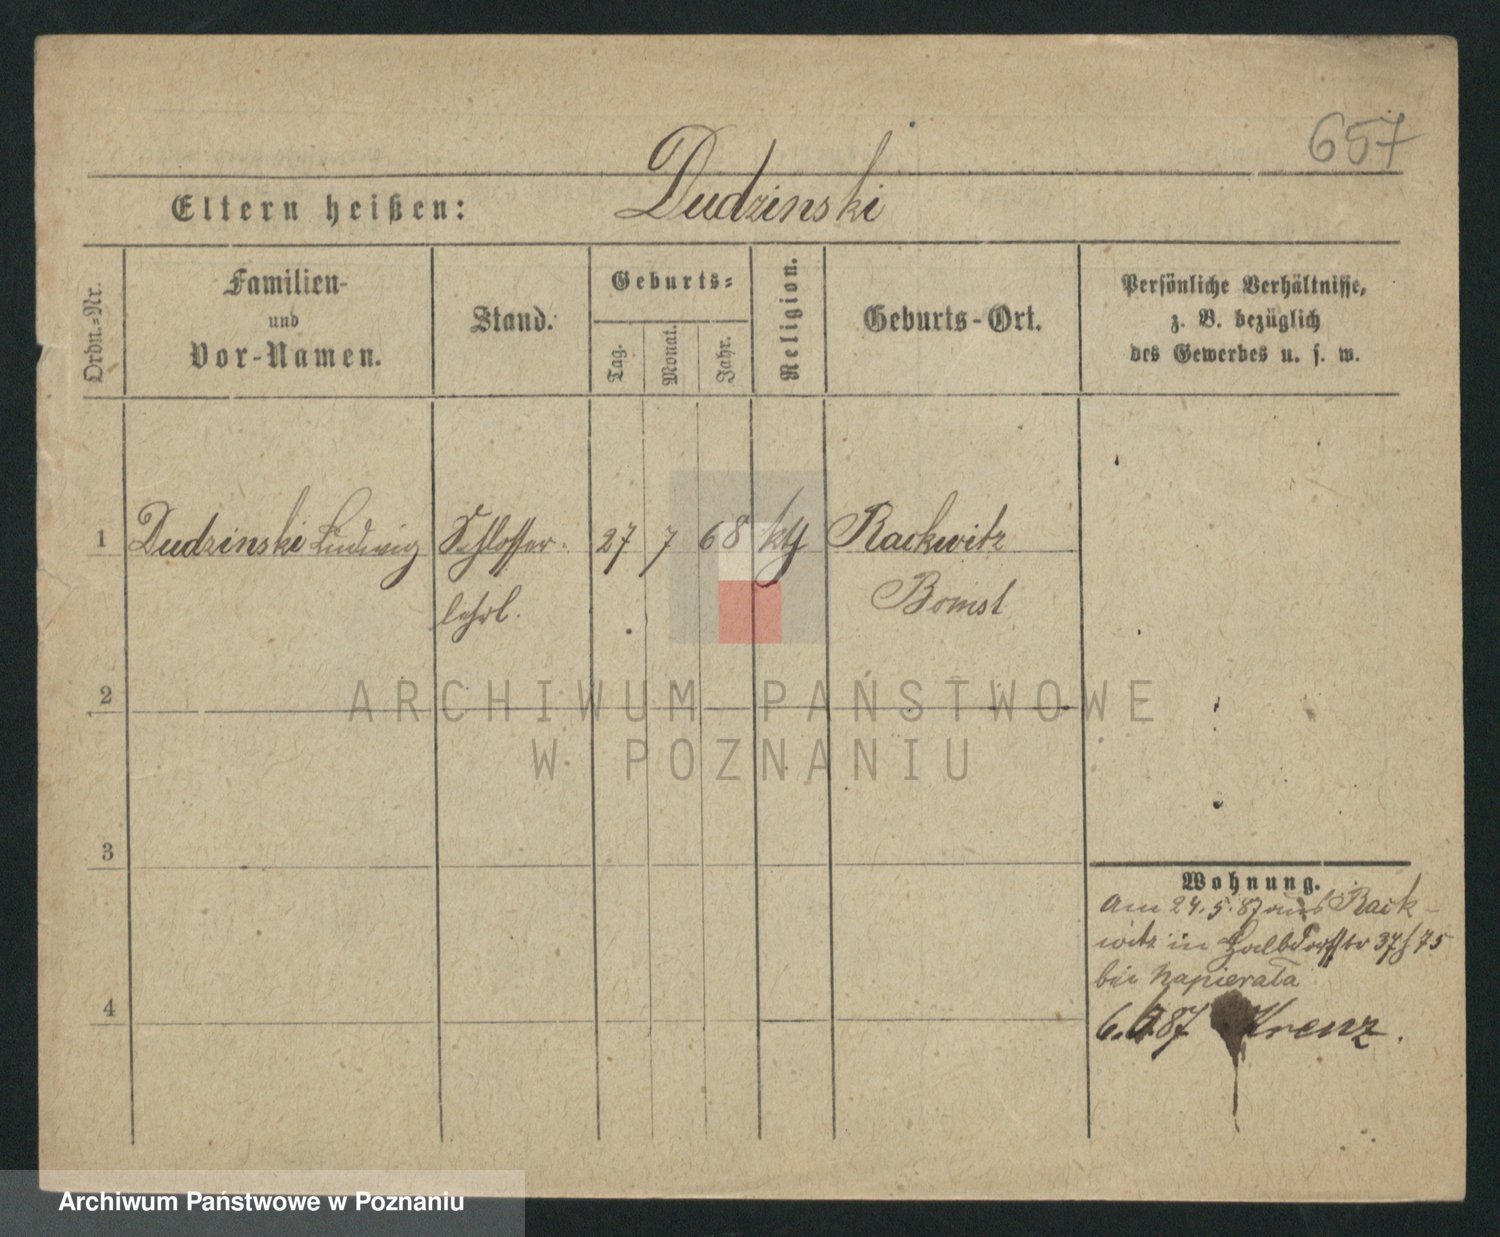 657
Eltern heißen: Dudzinski
Ordn.-Nr.
Familien-
und
Vor-Namen.
Stand.
Geburts-
Tag.
Monat.
Jahr.
Religion.
Geburts-Ort.
Persönliche Verhältnisse,
z. B. bezüglich
des Gewerbes u. s. w.
1 Dudzinski Ludwig Schlosser- 27 7 68 kth Rackwitz
lehrl. Bomst
2
3
4
Wohnung.
Am 24.5.87 aus Rack-
witz in Halbdorfstr 37 75
bei Napierala
6.6.87 Krenz.
ARCHIWUM PAŃSTWOWE
W POZNANIU
Archiwum Państwowe w Poznaniu